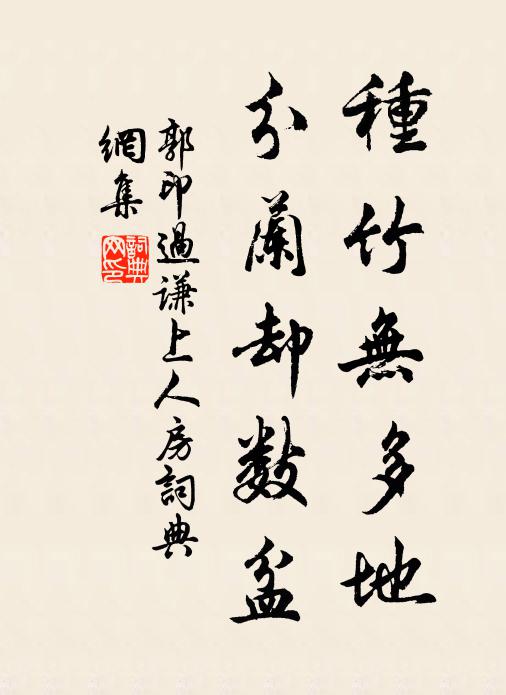 種竹無多地
分蘭却数盆
郭印過謙上人房詞典
網集
詞典
网印